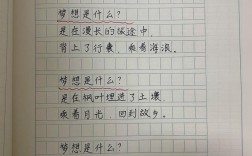 梦想是什么？
是在漫长的旅途中，
背上了行囊，乘着海浪。
梦想是什么？
是在枫叶埋进了土壤，
乘着月光，回到故乡。
梦想是什么？